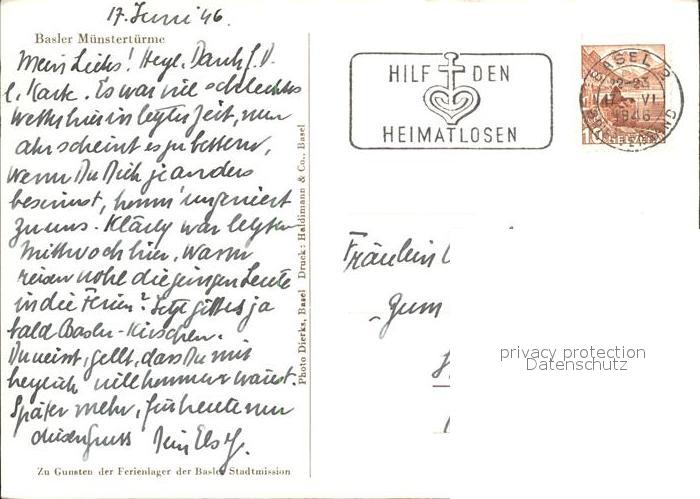 17. Juni 46.
Basler Münstertürme
Mein Liebs! Hrzl. Dank f. D.
l. Karte. Es war viel schlechtes
Wetter hier in letzter Zeit, nun
aber scheint es zu bessern,
Wenn Du Dich je anders
besinnst, komm' ungeniert
zu uns. Klärly war letzten
Mittwoch hier. Wann
reisen wohl die jungen Leute
in die Ferien? Jetzt gibt es ja
bald Basler-Kirschen.
Du weisst, gellt, dass Du mir
herzlich willkommen wärst.
Später mehr, für heute nur
diesen Gruss Dein
Zu Gunsten der Ferienlager der Basler Stadtmission
Photo Dierks, Basel Druck: Haldimann & Co., Basel
HILF DEN
HEIMATLOSEN
BASEL 2
VI
1946
Fräulein
Zum
privacy protection
Datenschutz